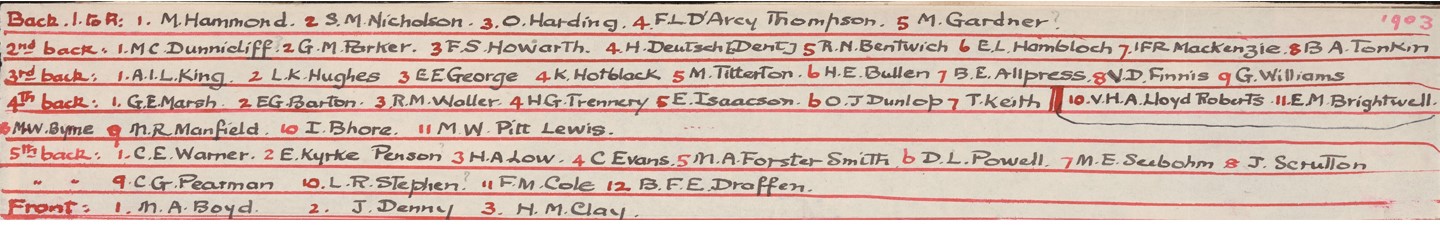 Back. l. to R: 1. M. Hammond. 2 S.M. Nicholson. 3. O. Harding. 4. F.L. D'Arcy Thompson. 5 M. Gardner? 1903
2nd back: 1. M.C. Dunnicliff? 2 G.M. Parker. 3 F.S. Howarth. 4. H. Deutsch [Dent] 5 R.N. Bentwich 6 E.L. Hambloch 7. IFR Mackenzie. 8 B A. Tonkin
3rd back: 1. A.I.L. King. 2 L.K. Hughes 3 EE George 4 K. Hotblack 5 M. Titterton. 6 H.E. Bullen 7 B.E. Allpress. 8 V.D. Finnis 9 G. Williams
4th back: 1. G.E. Marsh. 2 EG. Barton. 3 R.M. Waller. 4 H.G. Trennery 5 E. Isaacson. 6 O.J Dunlop 7 T. Keith 10. V.H.A. Lloyd Roberts. 11. E.M. Brightwell.
8 M.W. Byrne 9 M.R. Manfield. 10 I. Bhore. 11 M.W. Pitt Lewis.
5th back: 1. C.E. Warner. 2 E. Kyrke Penson 3 H.A Low. 4 C Evans. 5 M.A. Forster Smith 6 D.L. Powell. 7 M.E. Seebohm 8 J. Scrutton
" " 9. C.G. Pearman 10. L.R. Stephen? 11 F.M. Cole 12 B.F.E. Draffen.
Front: 1. M.A. Boyd. 2. J. Denny 3. H.M. Clay.